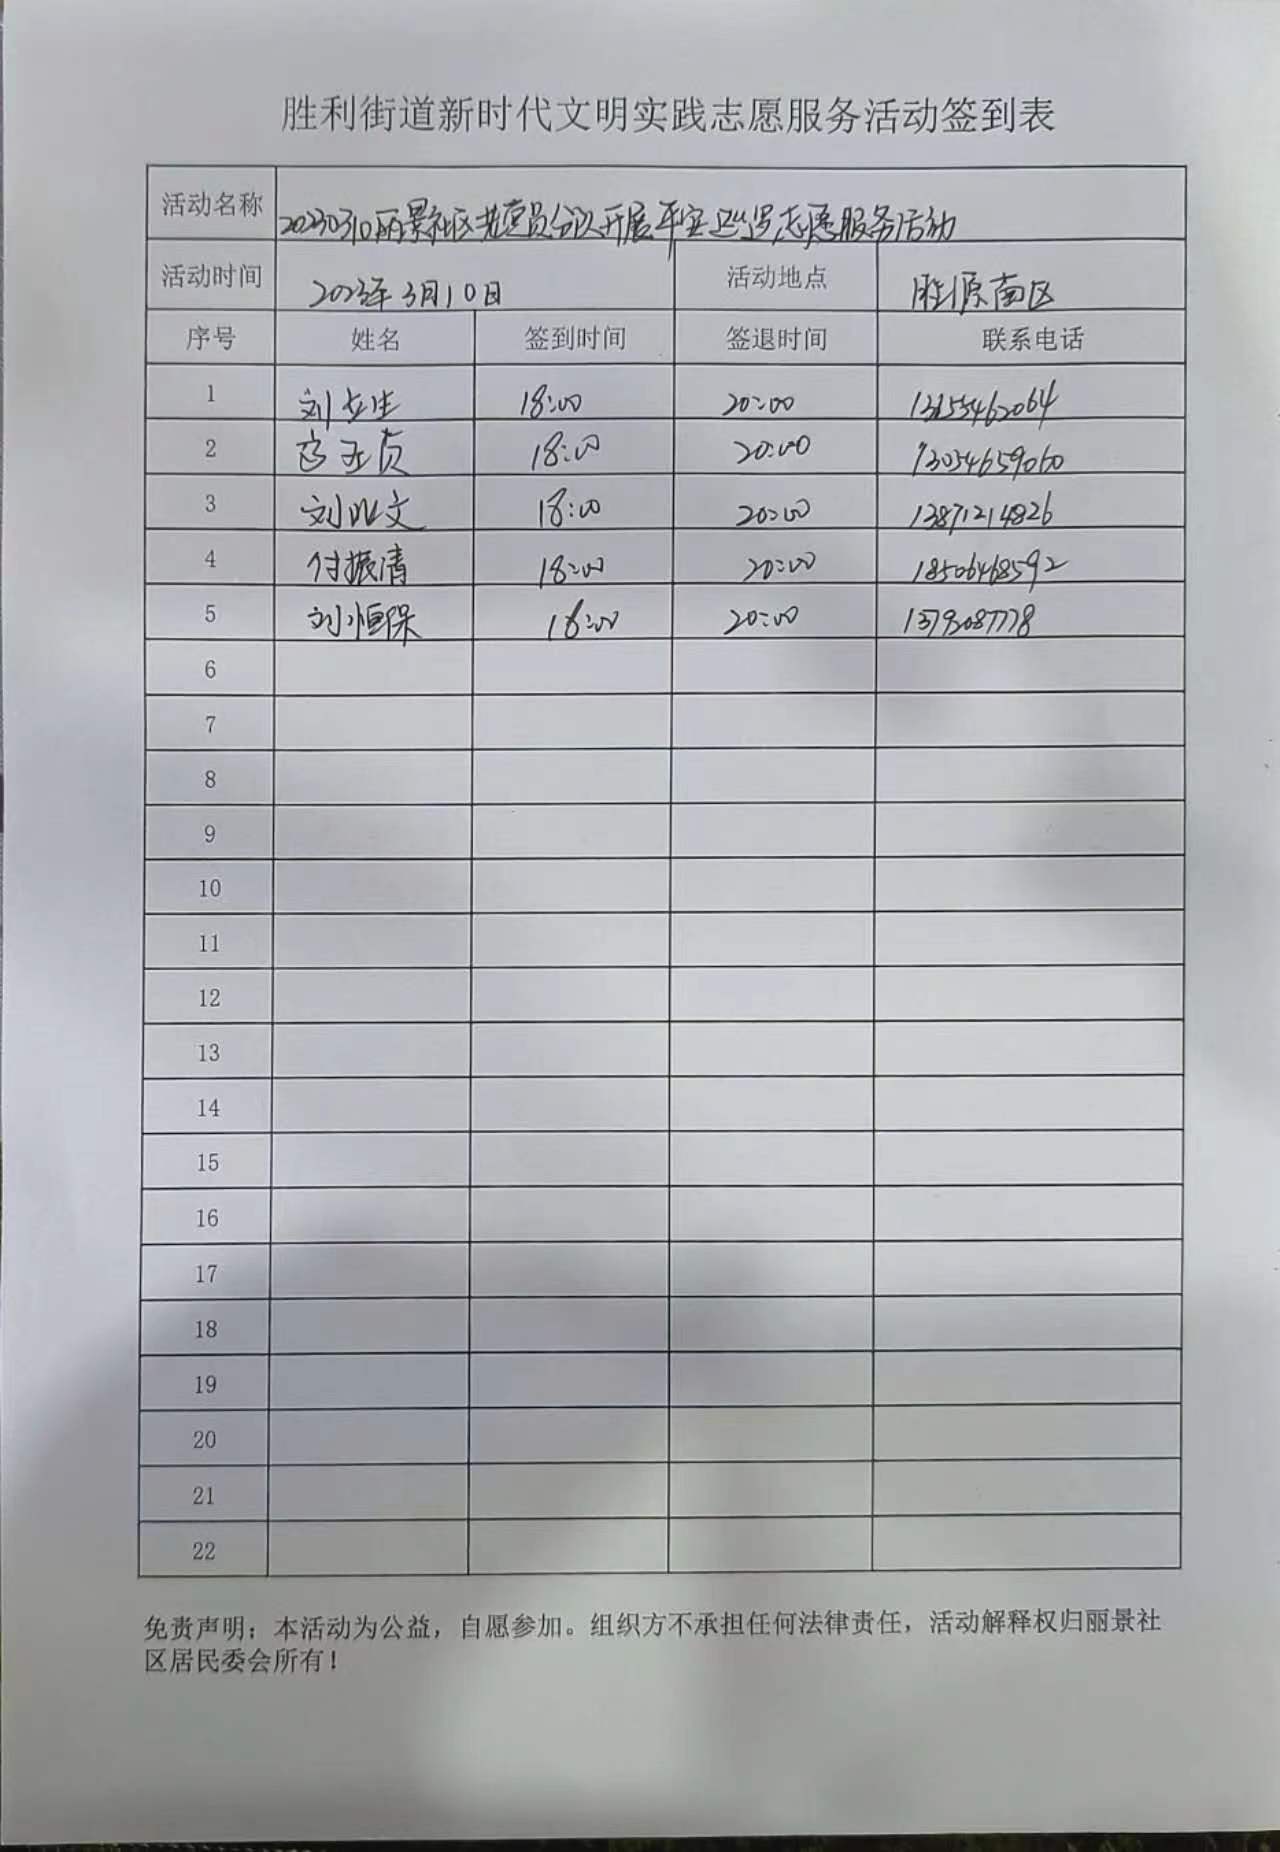 胜利街道新时代文明实践志愿服务活动签到表
活动名称 20230310丽景社区党员分次开展平安巡逻志愿服务活动
活动时间 2023年3月10日 活动地点 胜源南区
序号 姓名 签到时间 签退时间 联系电话
1 刘 生 18:00 20:00 13155462064
2 18:00 20:00 13054659060
3 刘 文 18:00 20:00 13871214826
4 付振清 18:00 20:00 18506468592
5 刘恒保 18:00 20:00
6
7
8
9
10
11
12
13
14
15
16
17
18
19
20
21
22
免责声明：本活动为公益，自愿参加。组织方不承担任何法律责任，活动解释权归丽景社
区居民委会所有！